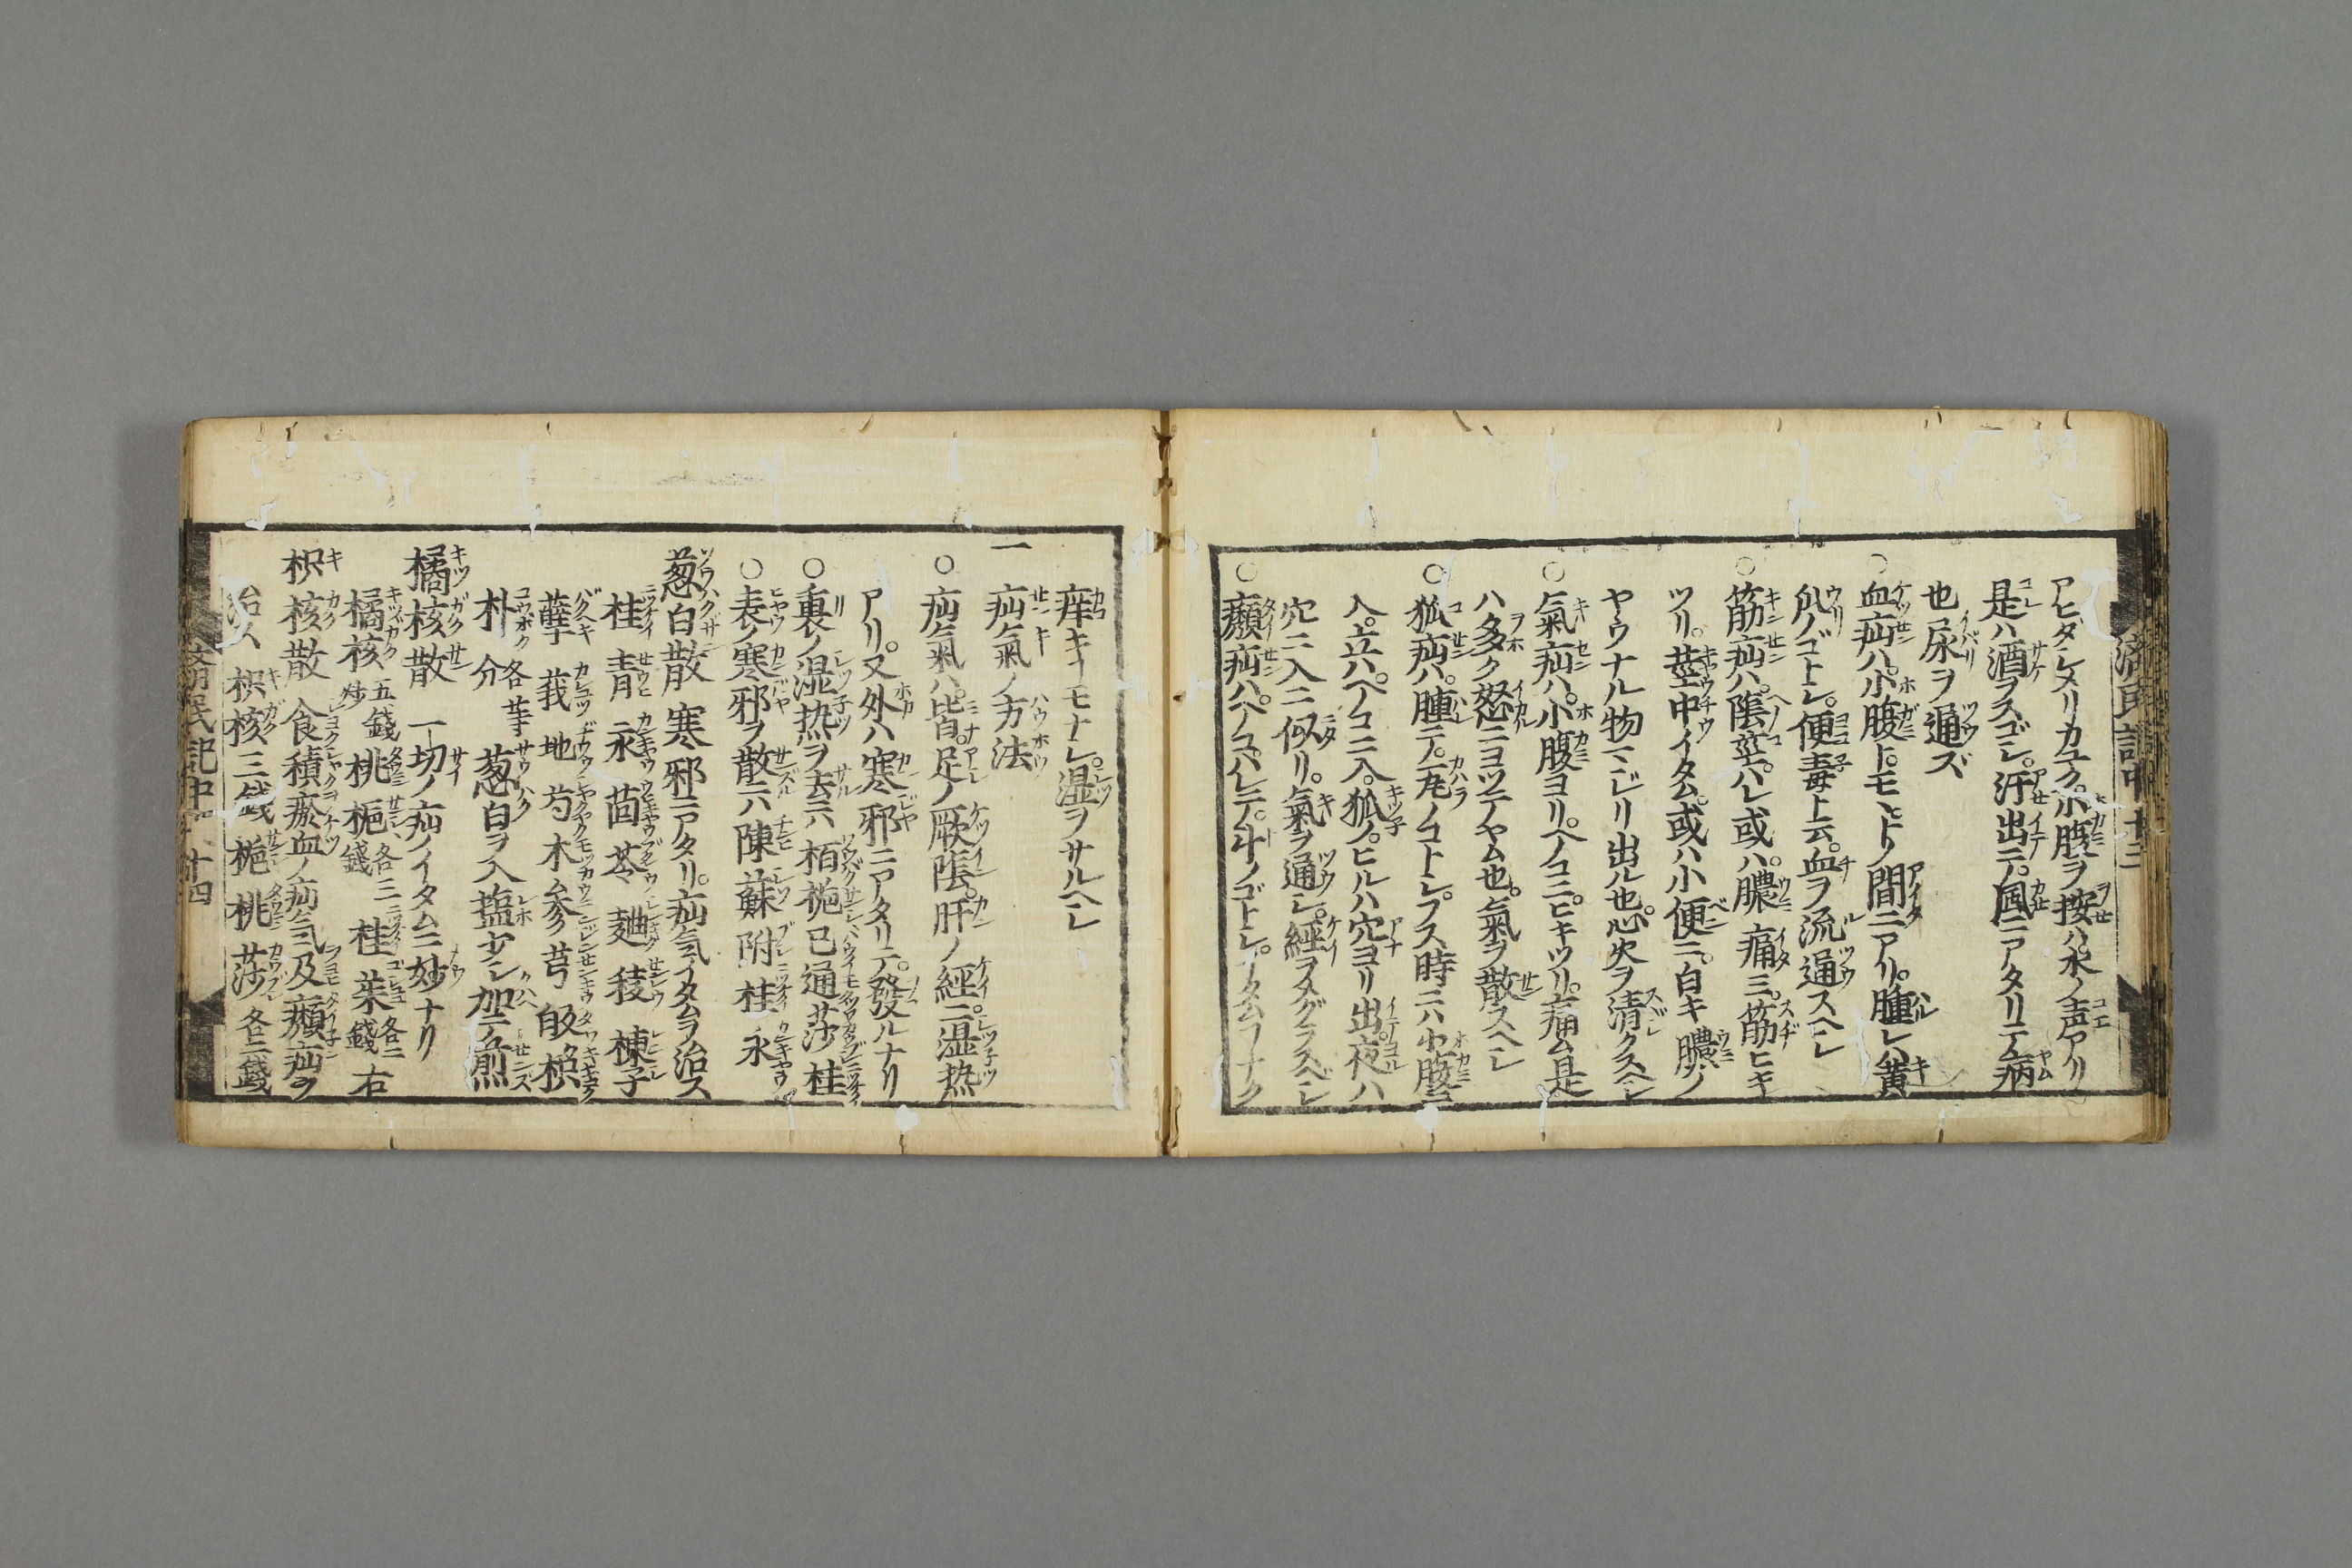 濟民記中 十三
アヒダシメリカユク。小腹ヲ按ハ水ノ声アリ
是ハ酒ヲスゴシ。汗出テ。風ニアタリテ病
也尿ヲ通ズ
○血疝ハ。小腹ト。モヽトノ間ニアリ。腫レハ黄
瓜ノゴトシ。便毒ト云。血ヲ流通スヘシ
○筋疝ハ。陰莖ハレ或ハ。膿痛ミ。筋ヒキ
ツリ。莖中イタム。或ハ小便ニ。白キ膿ノ
ヤウナル物マジリ出ル也。心火ヲ清クスヘシ
○氣疝ハ。小腹ヨリ。ヘノコニ。ヒキツリ。痛ム是
ハ多ク怒ニヨツテヤム也。氣ヲ散スヘシ
○狐疝ハ。腫テ。瓦ノコトシ。フス時ニハ小腹ニ
入。立ハ。ヘノコニ入。狐ノ。ヒルハ穴ヨリ出。夜ハ
穴ニ入ニ似タリ。氣ヲ通シ。經ヲメグラスベシ
○癩疝ハ。ヘノコ。ハレテ。斗ノゴトシ。イタムコトナク
痒キコトモナシ。湿ヲサルヘシ
一 疝氣ノ方法
○疝氣ハ。皆。足ノ厥陰。肝ノ經ニ。湿热
アリ。又外ハ寒邪ニアタリテ。發ルナリ
○裏ノ湿热ヲ去ニハ 栢 梔 已 通 莎 桂
○表ノ寒邪ヲ散ニハ 陳 蘇 附 桂 永
葱白散 寒邪ニアタリ。疝気イタムヲ治ス
桂 青 永 茴 苓 麯 稜 楝子
蘗 莪 地 芍 木 参 芎
朴 各等分 葱白ヲ入 塩少シ加テ煎
橘核散 一切ノ疝ノイタムニ妙ナリ
橘核 五錢炒 桃 梔 各三錢 桂 茱 各二錢 右
枳核散 食積瘀血ノ疝気ニ及癩疝ヲ
治ス 枳核 三銭 梔 桃 莎 各三錢
濟民記中 十四